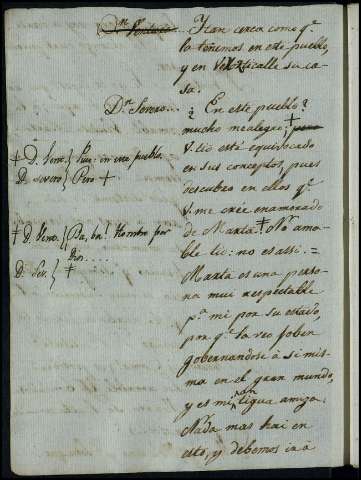 Y tan cerca como q.e
lo tenemos en este pueblo,
y en su calle su ca-
sa.
D.n Severo... ¿En este pueblo?
mucho me alegro: ‡
V. tio está equivocado
en sus conceptos, pues
descubro en ellos q.e
V. me crée enamorado
de Marta. ‡ No ama-
ble tio: no es assi. =
Marta es una perso-
na mui respectable
p.a mi por su estado,
por q.e la veo joben
gobernandose á si mis-
ma en el gran mundo,
y es mi antigua amiga.
Nada mas hai en
esto, y debemos ir á
‡ D. Vent. } Pues: in une pueblo.
D. severo } Pero ‡
‡ D. Vent. } Pa, ba! Hombre por
Dios....
D. Sev. } ‡